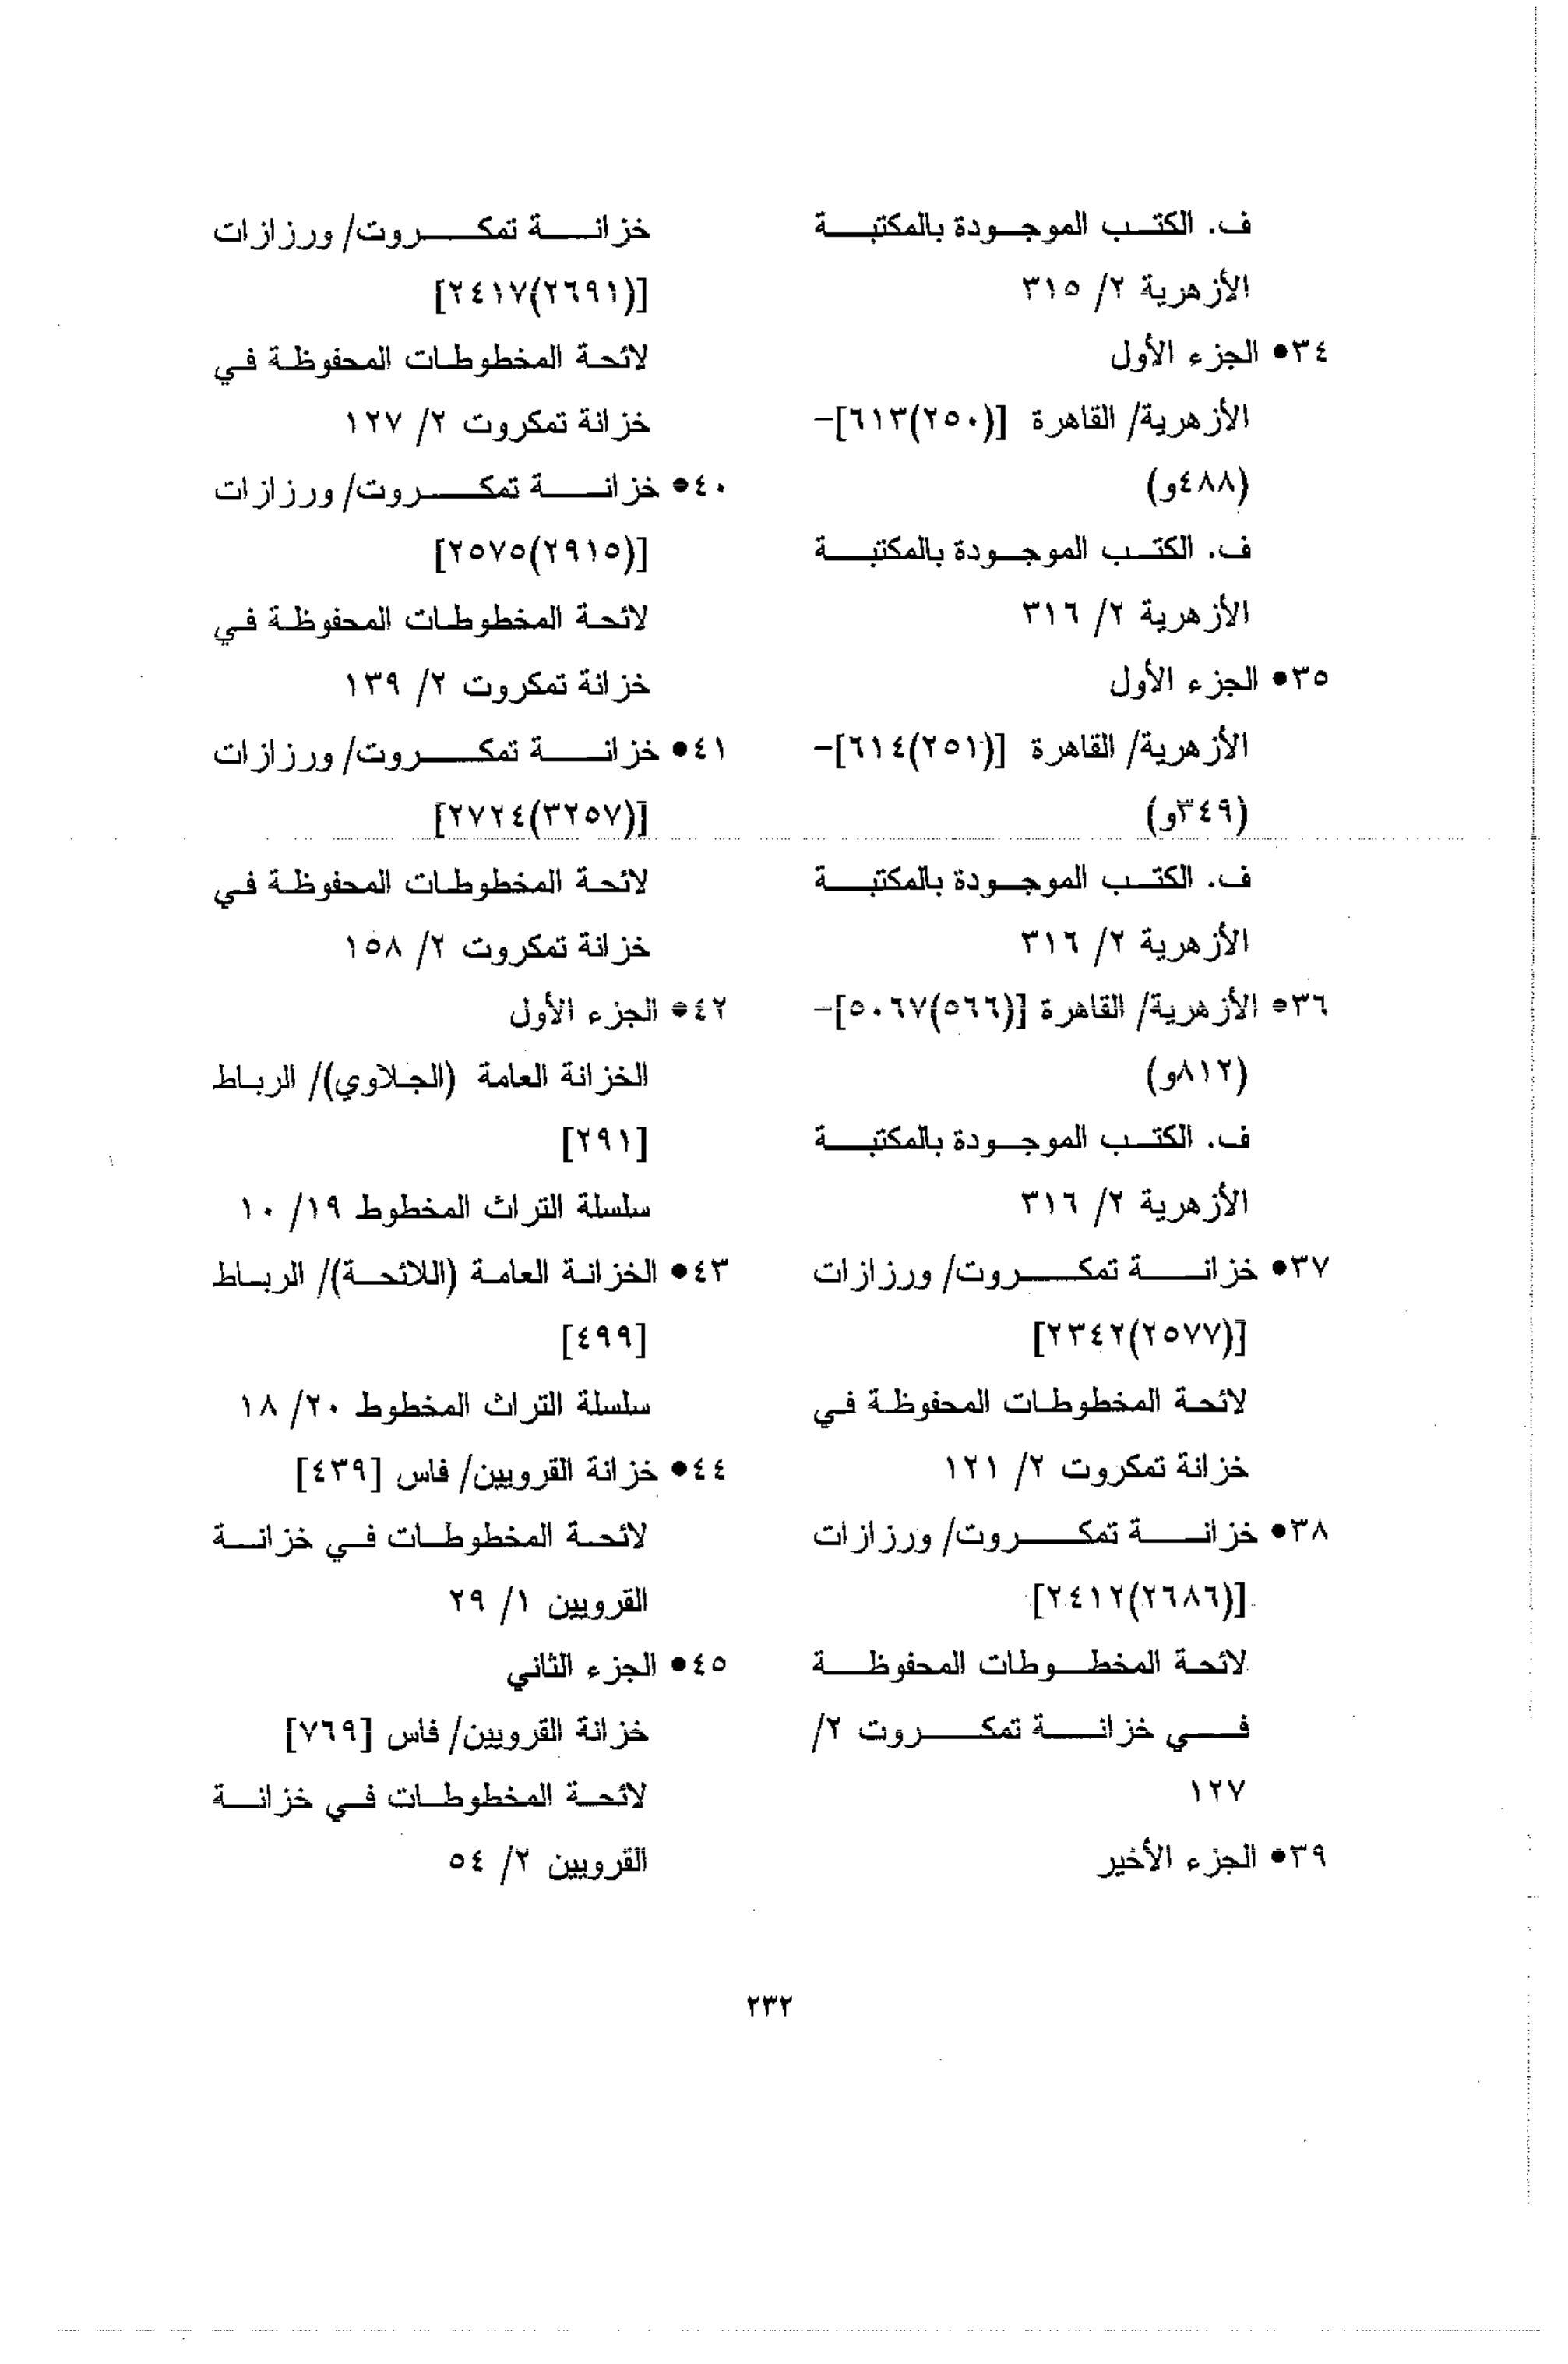 ف. الكتب الموجودة بالمكتبة
الأزهرية ٢/ ٣١٥
٣٤• الجزء الأول
الأزهرية/ القاهرة [(٢٥٠)٦١٣]-
(٤٨٨و)
ف. الكتب الموجودة بالمكتبة
الأزهرية ٢/ ٣١٦
٣٥• الجزء الأول
الأزهرية/ القاهرة [(٢٥١)٦١٤]-
(٣٤٩و)
ف. الكتب الموجودة بالمكتبة
الأزهرية ٢/ ٣١٦
٣٦• الأزهرية/ القاهرة [(٥٦٦)٥٠٦٧]-
(٨١٢و)
ف. الكتب الموجودة بالمكتبة
الأزهرية ٢/ ٣١٦
٣٧• خزانة تمكروت/ ورزازات
[(٢٥٧٧)٢٣٤٢]
لائحة المخطوطات المحفوظة في
خزانة تمكروت ٢/ ١٢١
٣٨• خزانة تمكروت/ ورزازات
[(٢٦٨٦)٢٤١٢]
لائحة المخطوطات المحفوظة
في خزانة تمكروت ٢/
١٢٧
٣٩• الجزء الأخير
خزانة تمكروت/ ورزازات
[(٢٦٩١)٢٤١٧]
لائحة المخطوطات المحفوظة في
خزانة تمكروت ٢/ ١٢٧
٤٠• خزانة تمكروت/ ورزازات
[(٢٩١٥)٢٥٧٥]
لائحة المخطوطات المحفوظة في
خزانة تمكروت ٢/ ١٣٩
٤١• خزانة تمكروت/ ورزازات
[(٣٢٥٧)٢٧٢٤]
لائحة المخطوطات المحفوظة في
خزانة تمكروت ٢/ ١٥٨
٤٢• الجزء الأول
الخزانة العامة (الجلاوي)/ الرباط
[٢٩١]
سلسلة التراث المخطوط ١٩/ ١٠
٤٣• الخزانة العامة (اللائحة)/ الرباط
[٤٩٩]
سلسلة التراث المخطوط ٢٠/ ١٨
٤٤• خزانة القرويين/ فاس [٤٣٩]
لائحة المخطوطات في خزانة
القرويين ١/ ٢٩
٤٥• الجزء الثاني
خزانة القرويين/ فاس [٧٦٩]
لائحة المخطوطات في خزانة
القرويين ٢/ ٥٤
٢٣٢